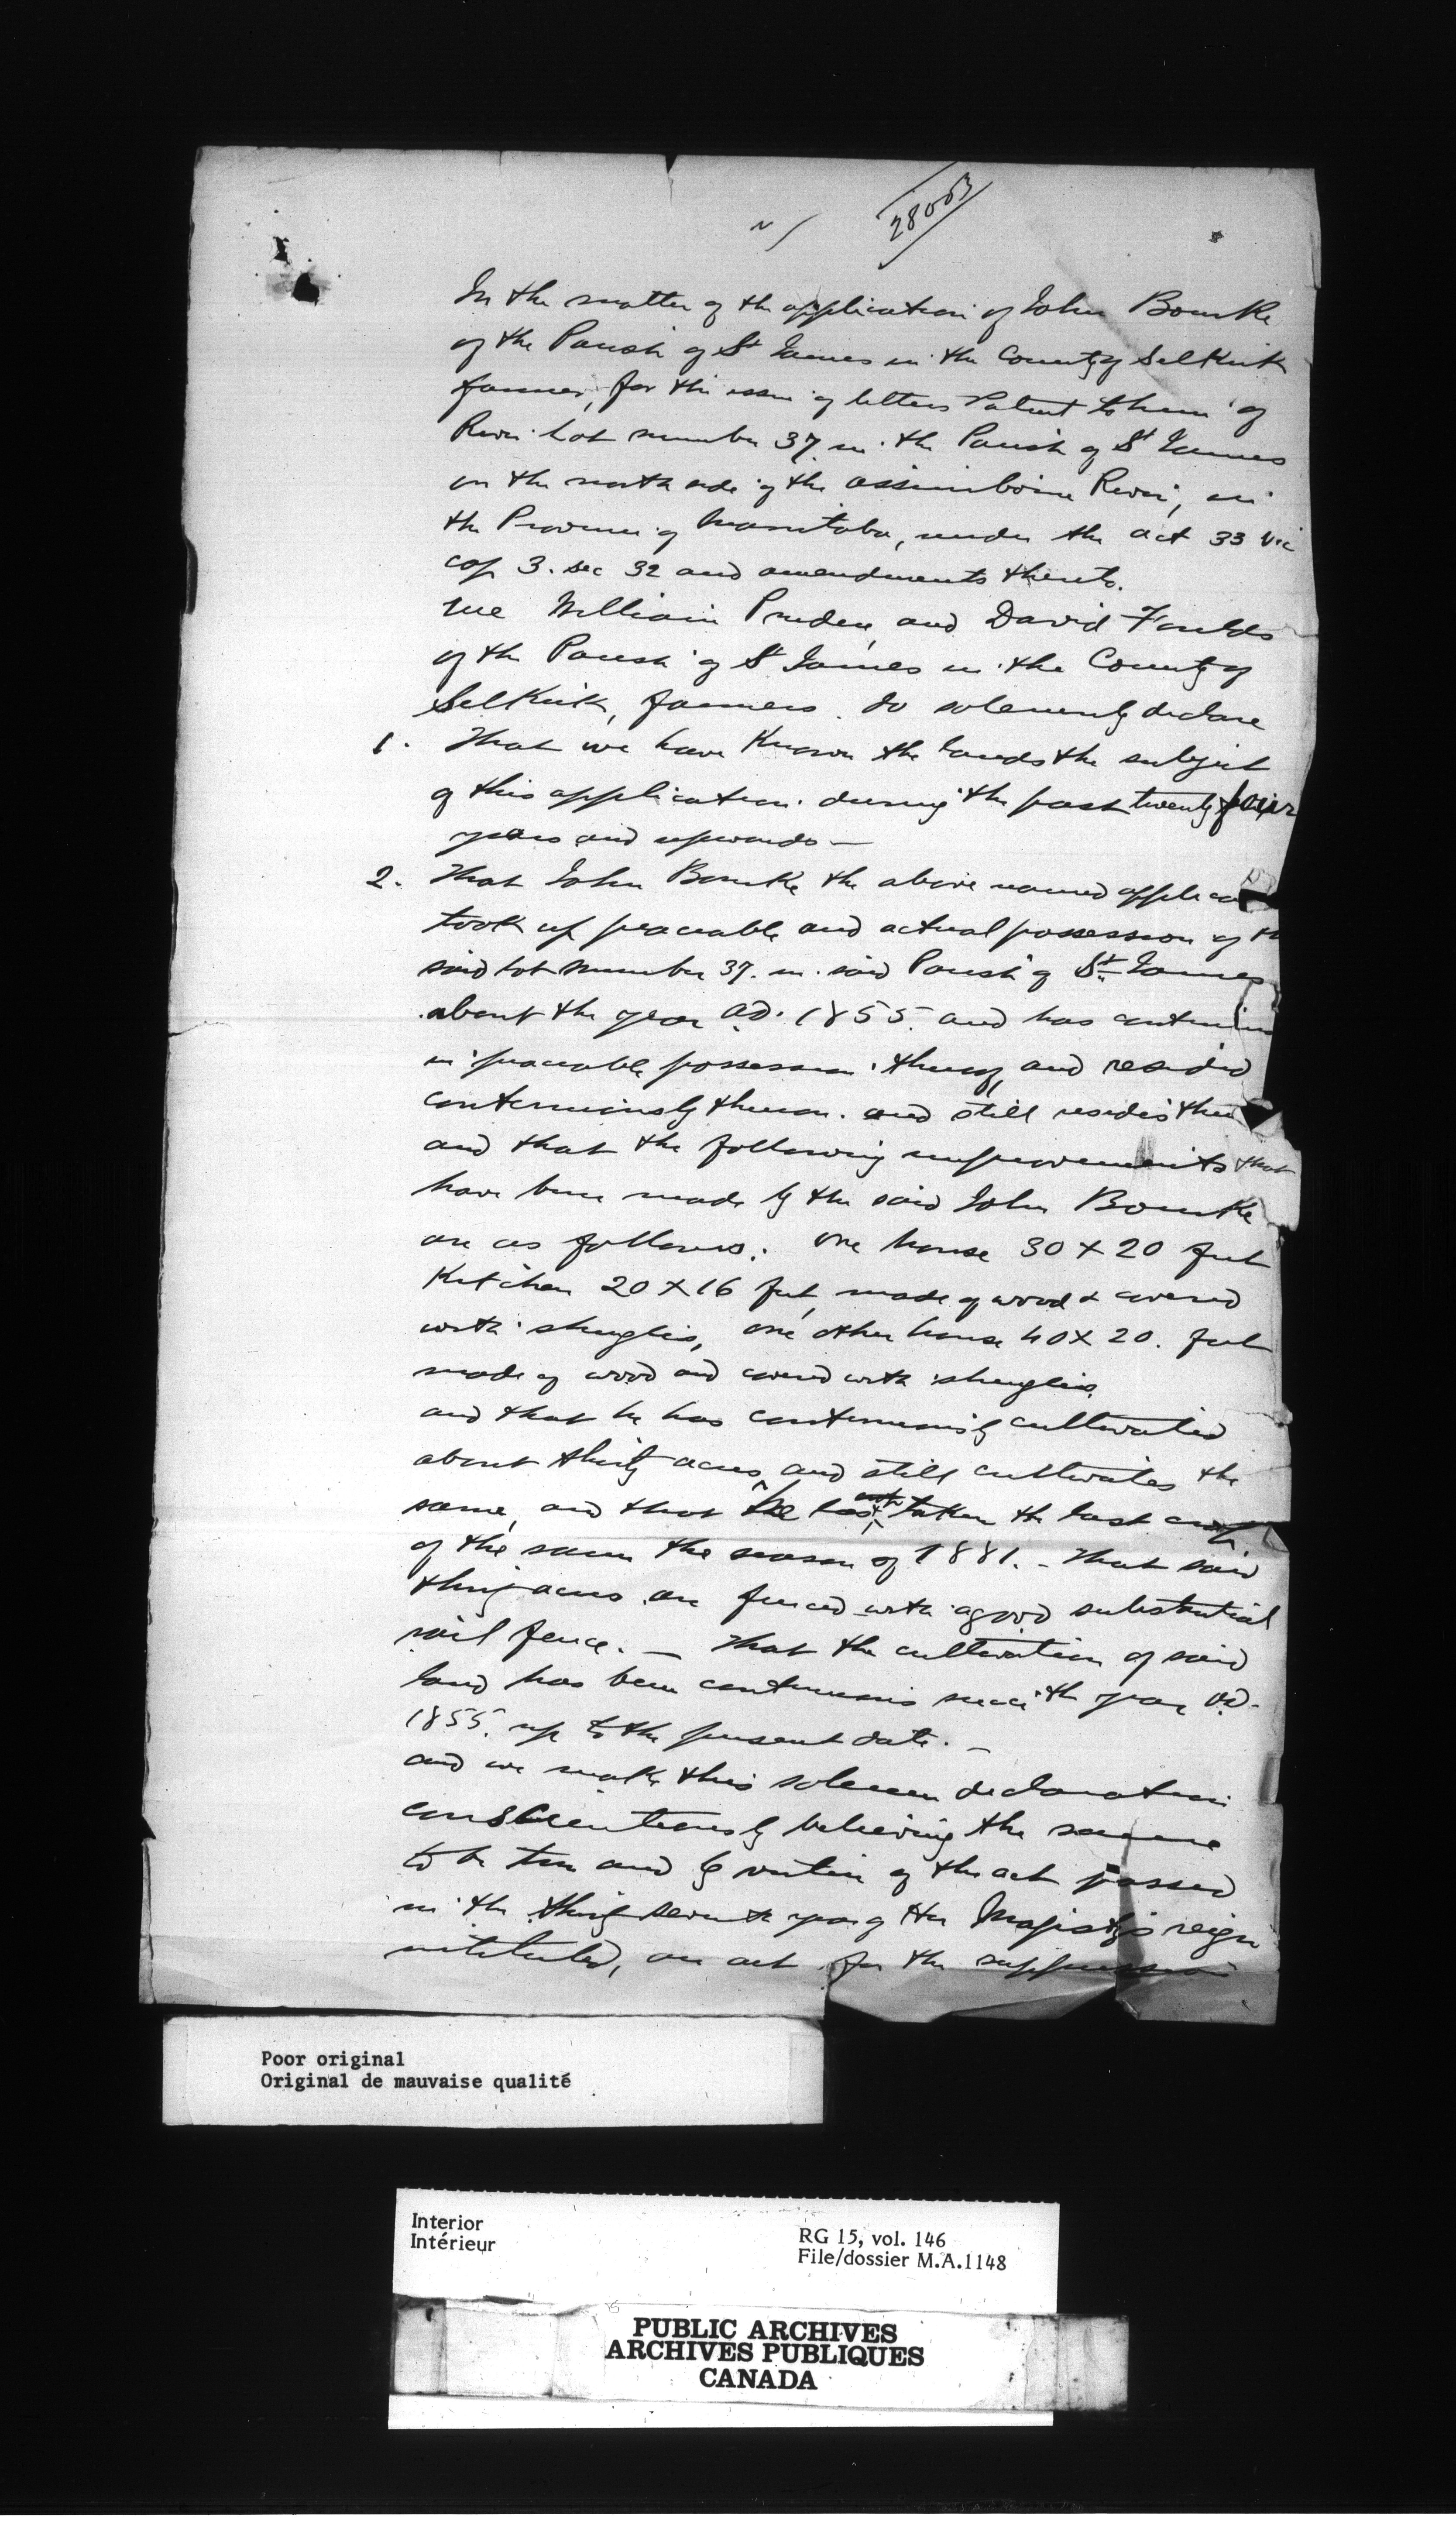 28053
In the matter of the application of John Bourke
of the Parish of St James in the County of Selkirk
farmer, for the issue of letters Patent to him of
River lot number 37 in the Parish of St James
on the north side of the Assiniboine River, in
the Province of Manitoba, under the act 33 Vic
cap 3. sec 32 and amendments thereto.
We William Pruden, and David Foulds
of the Parish of St James in the County of
Selkirk, farmers. do solemnly declare
1. That we have known the lands the subject
of this application during the past twenty four
years and upwards —
2. That John Bourke the above named applicant
took up peaceable and actual possession of the
said lot number 37. in said Parish of St. James
about the year A.D. 1855. and has continued
in peaceable possession thereof, and resided
continuously thereon. and still resides there
and that the following improvements that
have been made by the said John Bourke
are as follows: one house 30 x 20 feet
Kitchen 20 x 16 feet, made of wood & covered
with shingles, one other house 40 x 20. feet
made of wood and covered with shingles.
and that he has continuously cultivated
about thirty acres, and still cultivates the
same, and that he has taken the last crop
of the same the season of 1881. - That said
thirty acres are fenced with a good substantial
rail fence. — That the cultivation of said
land has been continuous since the year A.D.
1855. up to the present date. —
and we make this solemn declaration
conscientiously believing the same
to be true and by virtue of the act passed
in the thirty seventh year of Her Majesty's reign
intituled, an act for the suppression
Poor original
Original de mauvaise qualité
Interior
Intérieur
RG 15, vol. 146
File/dossier M.A.1148
PUBLIC ARCHIVES
ARCHIVES PUBLIQUES
CANADA